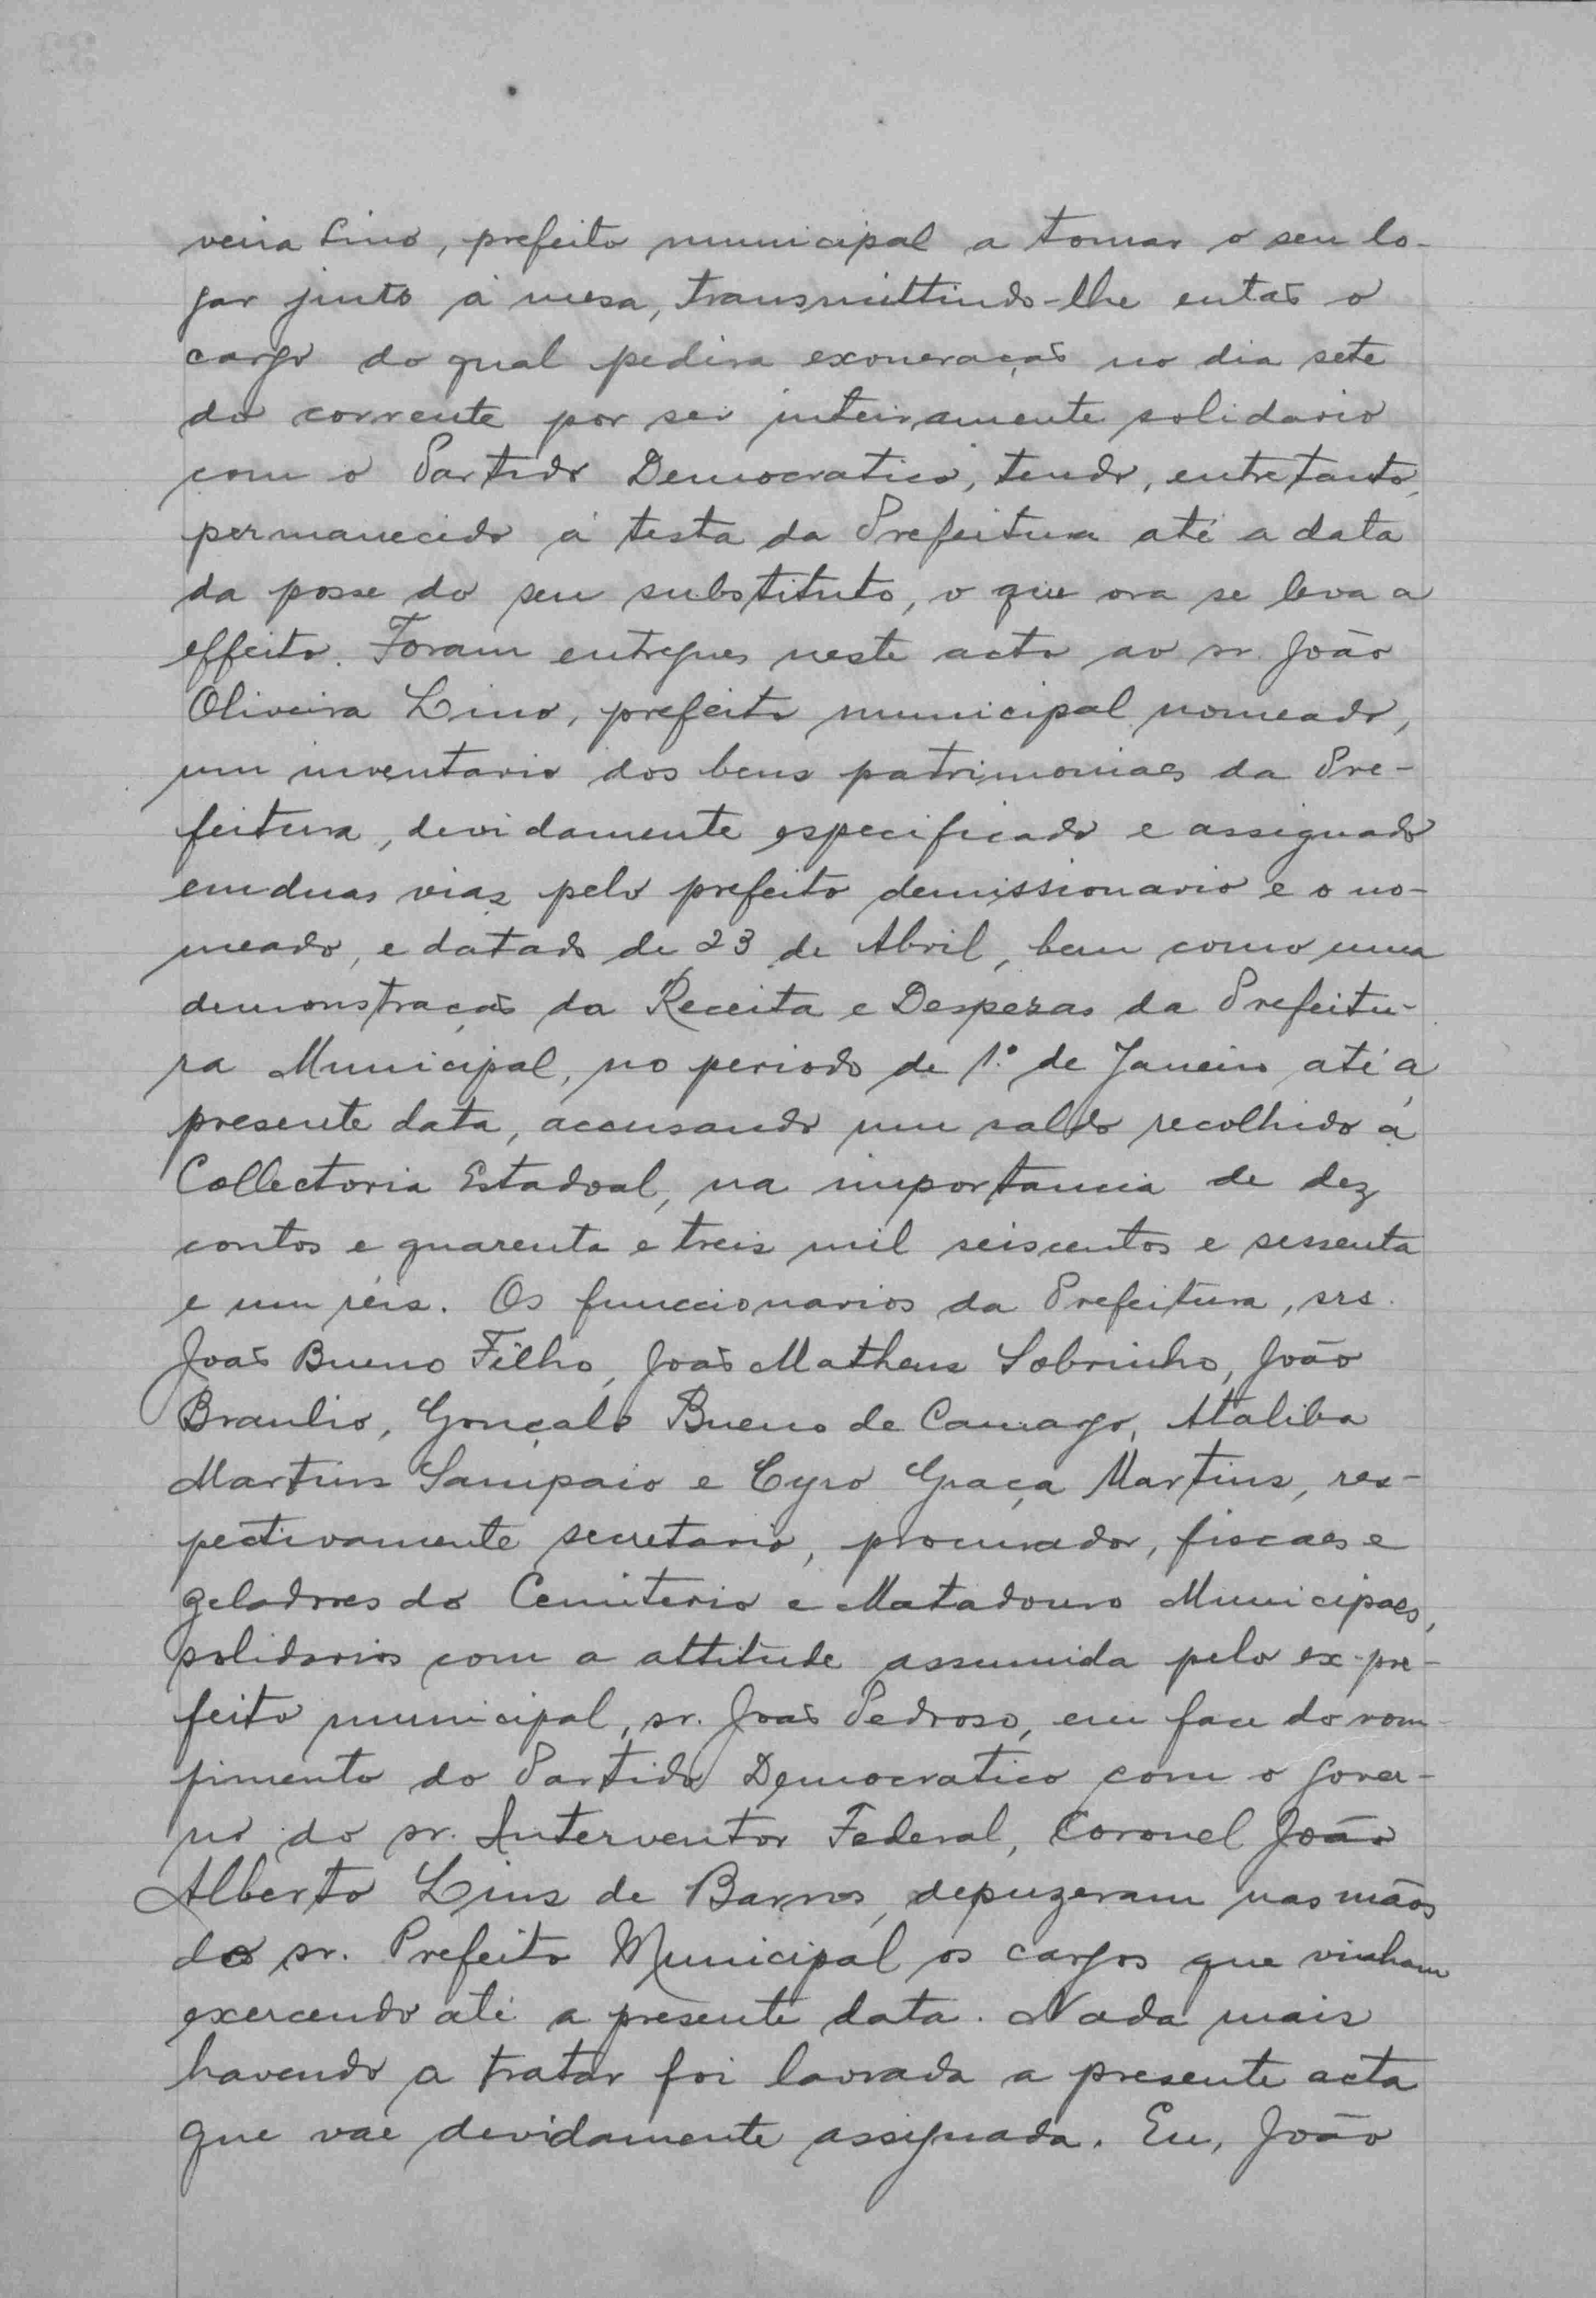 veira Lino, prefeito municipal a tomar o seu lo-
gar junto á mesa, transmittindo-lhe então o
cargo do qual pedira exoneração no dia sete
do corrente por ser inteiramente solidario
com o Partido Democratico, tendo, entretanto,
permanecido á testa da Prefeitura até a data
da posse do seu substituto, o que ora se leva a
effeito. Foram entregues neste acto ao sr. João
Oliveira Lino, prefeito municipal nomeado,
um inventario dos bens patrimoniaes da Pre-
feitura, devidamente especificado e assignado
em duas vias pelo prefeito demissionario e o no-
meado, e datado de 23 de Abril, bem como uma
demonstração da Receita e Despezas da Prefeitu-
ra Municipal, no periodo de 1º de Janeiro até á
presente data, accusando um saldo recolhido á
Collectoria Estadoal, na importancia de dez
contos e quarenta e treis mil seiscentos e sessenta
e um réis. Os funccionarios da Prefeitura, srs.
João Bueno Filho, João Matheus Sobrinho, João
Braulio, Gonçalo Bueno de Camargo, Ataliba
Martins Sampaio e Cyro Graça Martins, res-
pectivamente secretario, procurador, fiscaes e
zeladores do Cemiterio e Matadouro Municipaes,
solidarios com a attitude assumida pelo ex-pre-
feito municipal, sr. João Pedroso, em face do rom-
pimento do Partido Democratico com o gover-
no do sr. Interventor Federal, Coronel João
Alberto Lins de Barros, depuzeram nas mãos
do sr. Prefeito Municipal os cargos que vinham
exercendo até a presente data. Nada mais
havendo a tratar foi lavrada a presente acta
que vae devidamente assignada. Eu, João